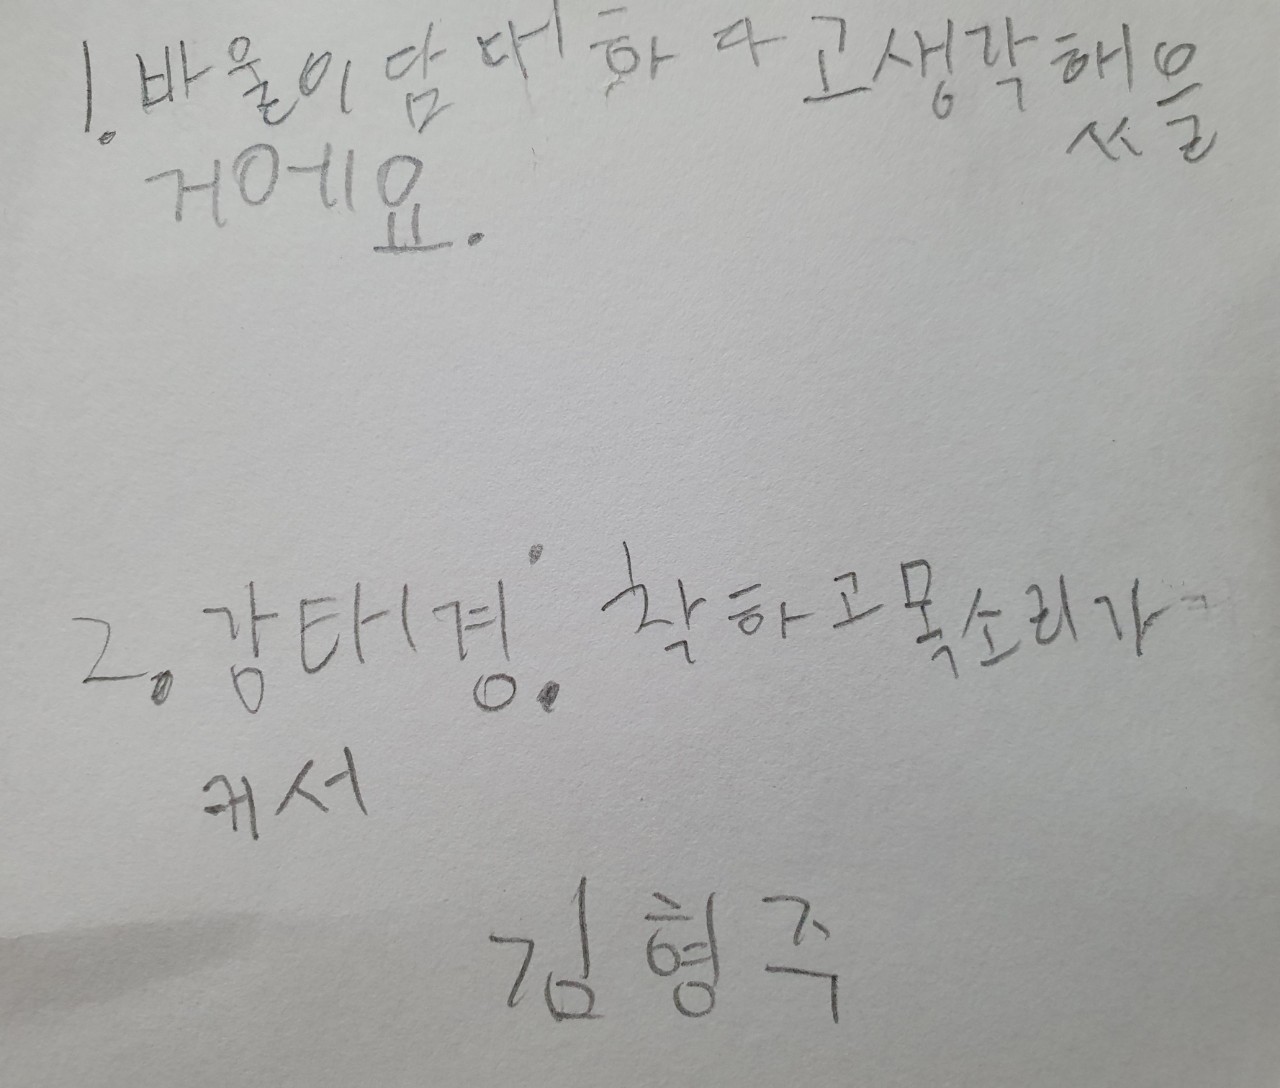 1.바울이 담대하다고생각해쓰을
거에요.
2. 강태경. 착하고목소리가
커서
김형주